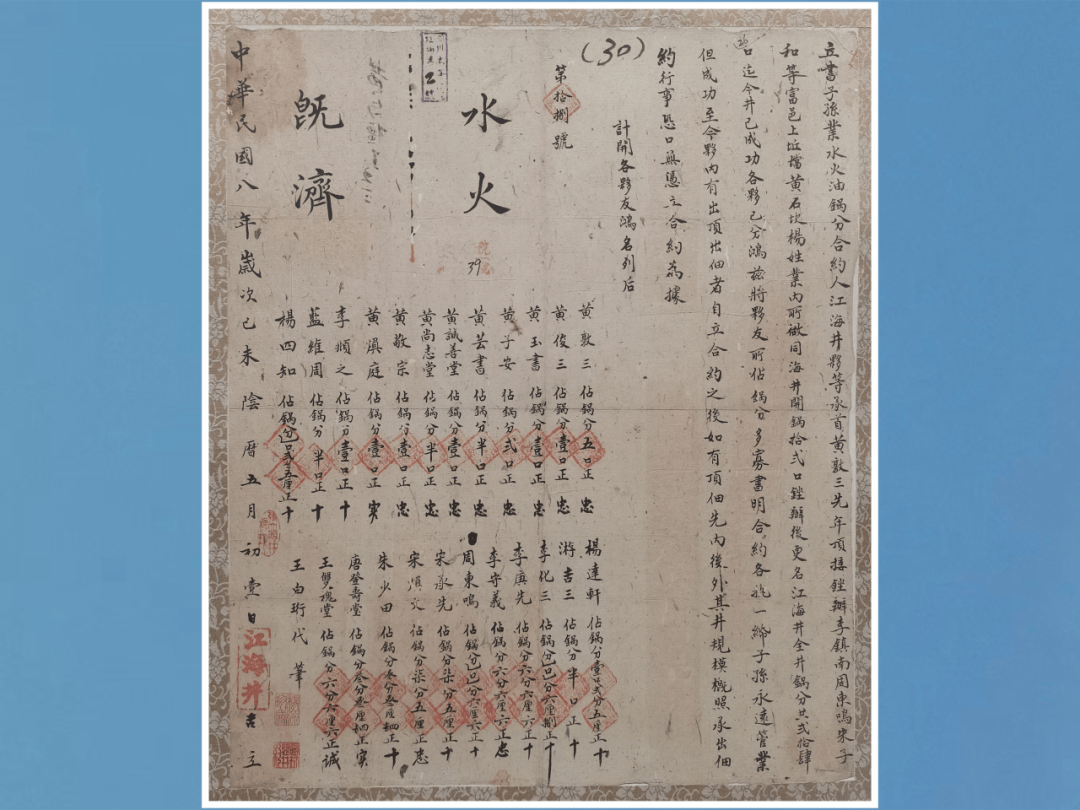 立書子孫業水火油鍋分合約人江海井夥等承首黃敦三先年頂接銼辦李鎮南周東鳴朱子
和等富邑上垱黃石坎楊姓業內所做同海井開鍋拾弍口銼辦後更名江海井全井鍋分共弍拾肆
口迄今井已成功各夥已分鴻茲將夥友所佔鍋分多寡書明合約各执一紙子孫永遠管業
但成功至今夥內有出頂出佃者自立合約之後如有頂佃先內後外其井規模概照承出佃
約行事恐口無憑立合約為據
計開各夥友鴻名列后
(30)
第拾捌號
水火
既濟
39
黃敦三 佔鍋分五口正 忠
黃俊三 佔鍋分壹口正 忠
黃玉書 佔鍋分壹口正 忠
黃子安 佔鍋分弍口正 忠
黃芸書 佔鍋分半口正 忠
黃誠善堂 佔鍋分壹口正 忠
黃尚志堂 佔鍋分半口正 忠
黃敬宗 佔鍋分壹口正 忠
黃滇庭 佔鍋分壹口正 寅
李順之 佔鍋分壹口正 十
藍維周 佔鍋分半口正 十
楊四知 佔鍋分 口弍 五厘正 十
楊達軒 佔鍋分壹口弍分五厘正 十
游吉三 佔鍋分半口正 十
李化三 佔鍋分 口 分六厘捌正 十
李廣先 佔鍋分六分六厘六正 十
李守義 佔鍋分六分六厘六正 忠
周東鳴 佔鍋分 口 分六厘六正 十
宋承先 佔鍋分柒分五厘正 十
宋順文 佔鍋分柒分五厘正 忠
朱少田 佔鍋分叁分叁厘 正 十
唐登壽堂 佔鍋分叁分叁厘 正 寅
王雙槐堂 佔鍋分六分六厘六正 誠
王白珩代筆
中華民國八年歲次己未陰曆五月初壹日江海井吉立